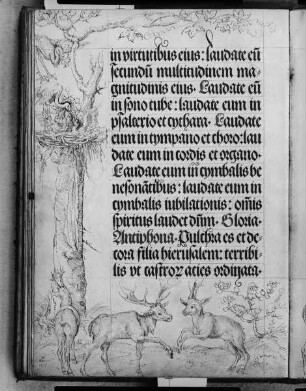 in virtutibus eius: laudate eū
secundū multitudinem ma-
gnitudinis eius. Laudate eū
in sono tube: laudate eum in
psalterio et cythara. Laudate
eum in tympano et choro: lau
date eum in cordis et organo.
Laudate eum in cymbalis be
nesonātibus: laudate eum in
cymbalis iubilationis: om̄is
spiritus laudet dūm. Gloria.
Antiphona. Pulchra es et de-
cora filia hierusalem: terribi-
lis vt castroꝝ acies ordinata.